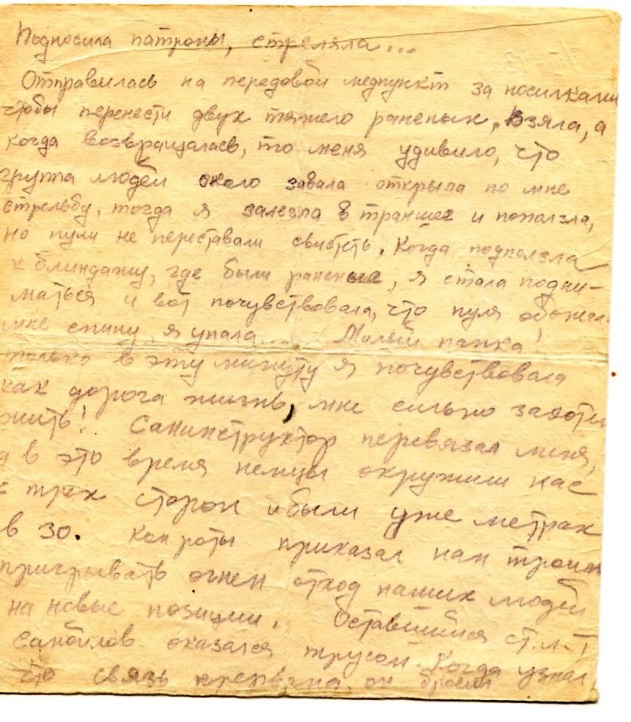 Подносила патроны, стреляла...
Отправилась на передовой медпункт за носилками
чтобы перенести двух тяжело раненых, взяла, а
когда возвращалась, то меня удивило, что
группа людей около завала открыла по мне
стрельбу, тогда я залезла в траншее и поползла,
но пули не переставали свистеть. Когда подползла
к блиндажу, где были раненые, я стала подни-
маться и вот почувствовала, что пуля обожгла
мне спину, я упала... Милый папка!
только в эту минуту я почувствовала
как дорога жизнь, мне сильно захоте
жить! Санинструктор перевязал меня,
а в это время немцы окружили нас
с трех сторон и были уже метрах
в 30. Ком роты приказал нам троим
пригрывать огнем отход наших людей
на новые позиции. Оставшийся ст. л-т
оказался трусом. Когда узнал
что связь прервана, он бросил